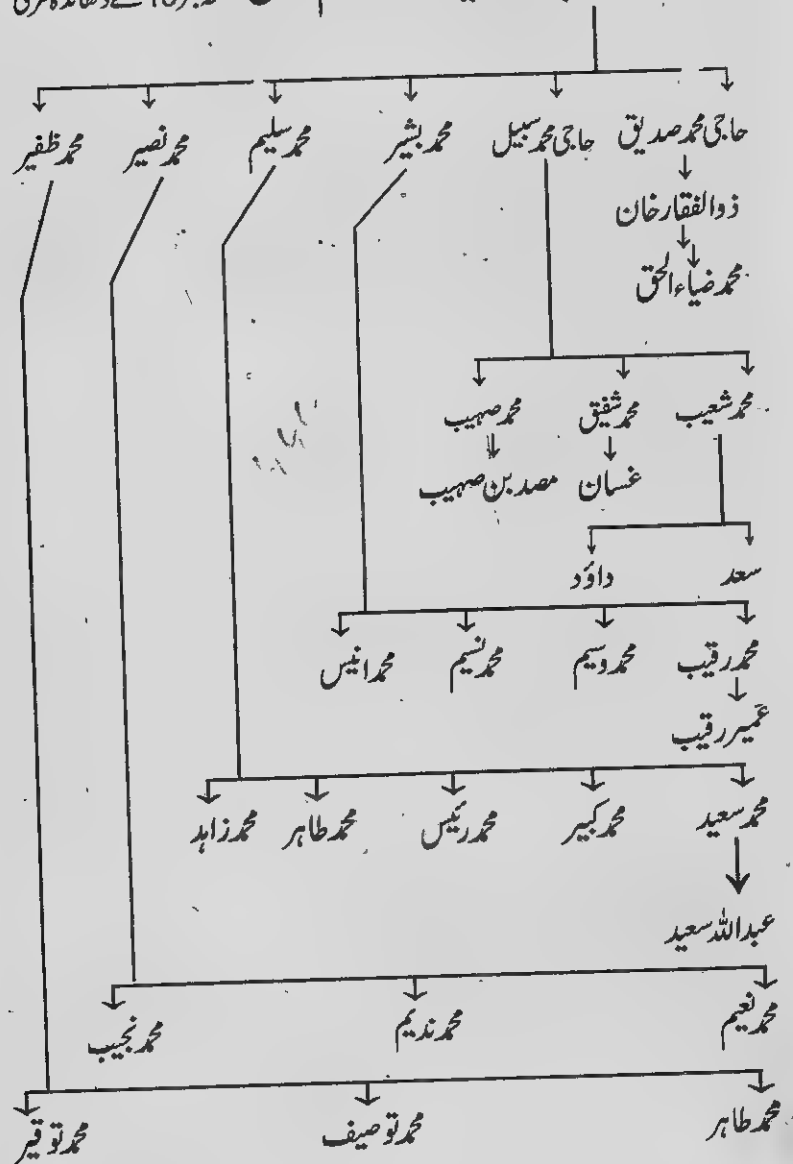 حاجی محمد صدیق حاجی محمد سبیل محمد بشیر محمد سلیم محمد نصیر محمد ظفیر
ذوالفقار خان
محمد ضیاء الحق
محمد شعیب محمد شفیق محمد صہیب
غسان مصد بن صہیب
سعد داؤد
محمد رقیب محمد وسیم محمد نسیم محمد انیس
عمیر رقیب
محمد سعید محمد کبیر محمد رئیس محمد طاہر محمد زاہد
عبداللہ سعید
محمد نعیم محمد ندیم محمد نجیب
محمد طاہر محمد توصیف محمد توقیر